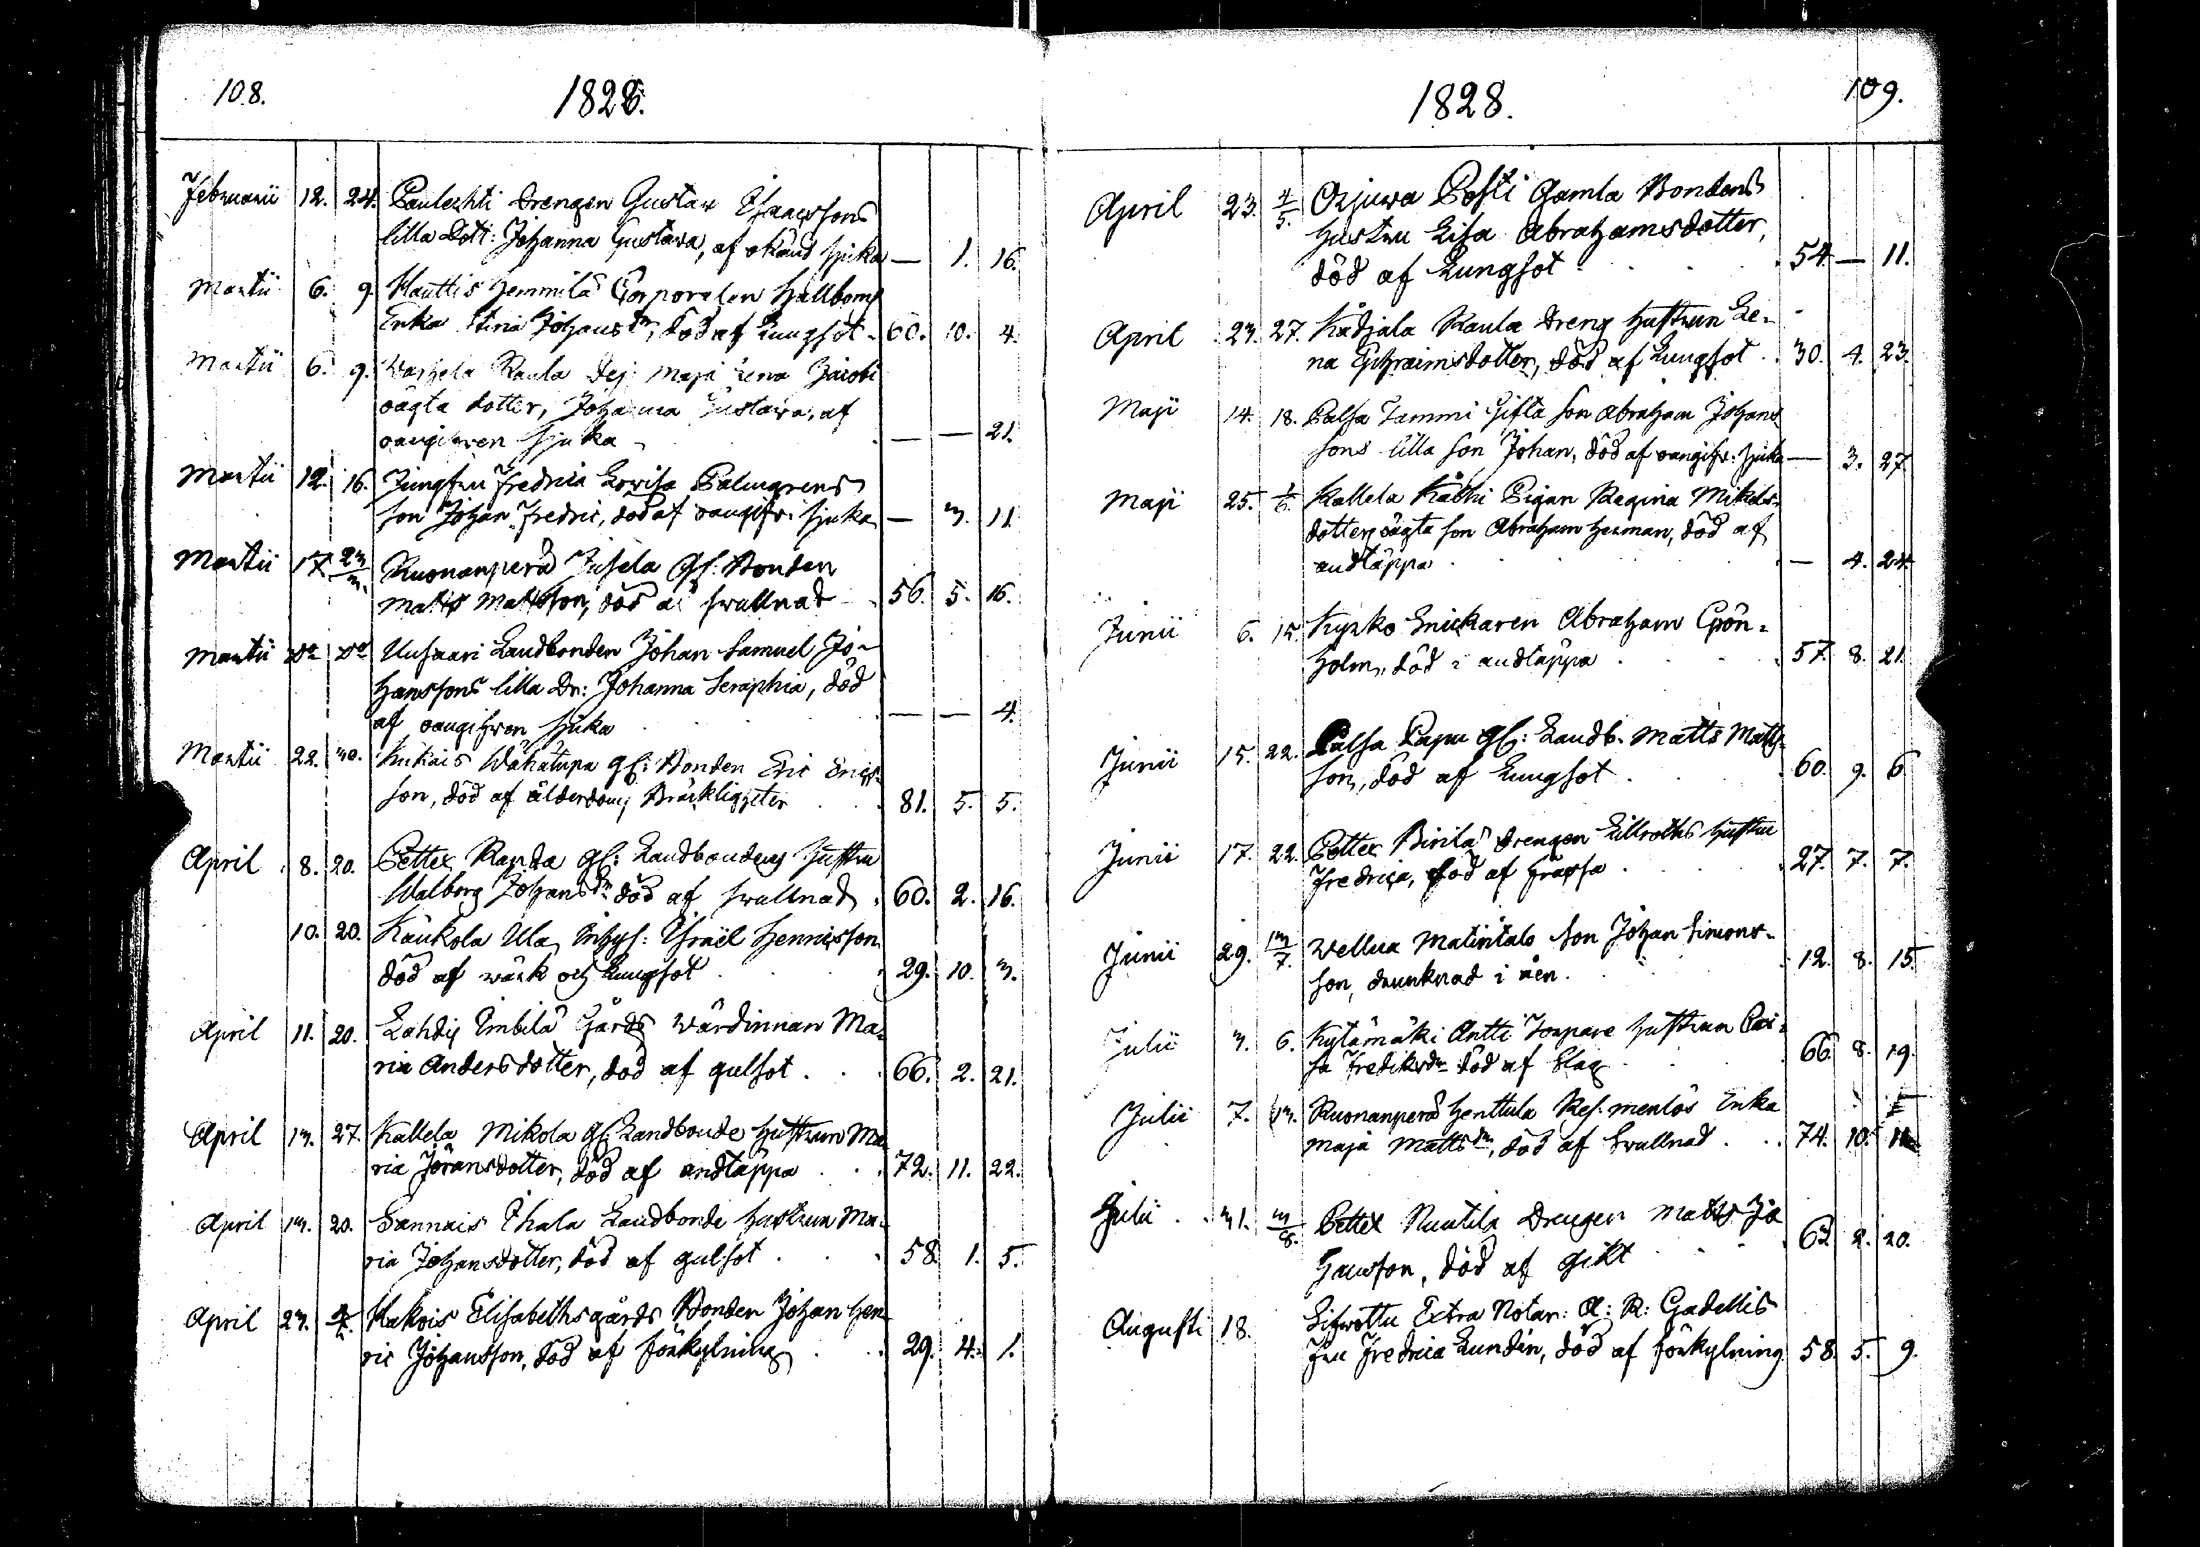 108.
1828.
Februarii 12. 24. Paulexhti Drengen Gustav Isaacssons
lilla Dott: Johanna Gustava, af okänd sjuka — 1. 16.
Martii 6. 9. Hauttis Hemmilä Corporalen Hallboms
Enka Stina Johansdr, död af Lungsot 60. 10. 4.
Martii 6. 9. Raula Pig: Maja Lena Jacobs
oägta dotter, Johanna Gustava, af
oangifven sjuka — — 21.
Martii 12. 16. Jungfru Fredrica Lovisa Palmgrens
son Johan Fredric, död af oangifv. sjuka — 3. 11.
Martii 17. 23/3. Ruonanperä Jusela Gl: Bonden
Matts Mattsson, död af swullnad 56. 5. 16.
Martii Do Do Uusaari Landbonden Johan Samuel Jo-
hanssons lilla Dr: Johanna Seraphia, död
af oangifven sjuka — — 4.
Martii 22. 30. Kukais Wähätupa gl: Bonden Eric Erics-
son, död af ålderdoms Bräckligheter 81. 5. 5.
April 8. 20. Pettex Randa gl: Landbondens Hustru
Walborg Johansdr död af swullnad 60. 2. 16.
10. 20. Kaukola Ula Inhys: Israël Henricsson
död af wärk och Lungsot 29. 10. 3.
April 11. 20. Lahdis Imbilä Gårds Wärdinnan Ma-
ria Andersdotter, död af gulsot 66. 2. 21.
April 13. 27. Kallela Mikola gl: Landbonde Hustrun Ma-
ria Jöransdotter, död af andtäppa 72. 11. 22.
April 13. 20. Sannais Ihala Landbonde Hustrun Ma-
ria Johansdotter, död af gulsot 58. 1. 5.
April 23. Kakois Elisabethsgårds Bonden Johan Hen-
ric Johansson, död af förkylning 29. 4. 1.
1828.
109.
April 23. 4/5. Orjuwa Posti Gamla Bondens
Hustru Lisa Abrahamsdotter,
död af Lungsot 54. — 11.
April 23. 27. Kådjala Raula Dreng Hustrun Le-
na Ephraimsdotter, död af Lungsot 30. 4. 23.
Maji 14. 18. Palsa Tammi Gifta son Abraham Johans-
sons lilla son Johan, död af oangifv: sjuka — 3. 27.
Maji 25. 1/6. Kallela Kåhi Pigan Regina Mikels-
dotters oägta son Abraham Herman, död af
andtäppa — 4. 24.
Junii 6. 15. Kyrko Snickaren Abraham Grön-
holm, död i andtäppa 57. 8. 21.
Junii 15. 22. Palsa Papu gl: Landb. Matts Matts-
son, död af Lungsot 60. 9. 6.
Junii 17. 22. Pettex Pirilä Drengen Hustru
Fredrica, död af Frossa 27. 7. 7.
Junii 29. 13/7. Wellua Matintalo Son Johan Simons-
son, drunknad i åen. 12. 8. 15.
Julii 3. 6. Kytämäki Antti Torpare Hustrun Cai-
sa Fredriksdr död af Slag 66. 8. 19.
Julii 7. 13. Ruonanperä Henttula Ref. menlös Enka
Maja Mattsdr, död af Swullnad 74. 10. 11.
Julii 31. 3/8. Pettex Nuutila Drengen Matts Jo-
hansson, död af Gikt 62. 2. 20.
Augusti 18. Extra Notar: A: R: Gadellis
Fru Fredrica Lundin, död af förkylning 58. 5. 9.